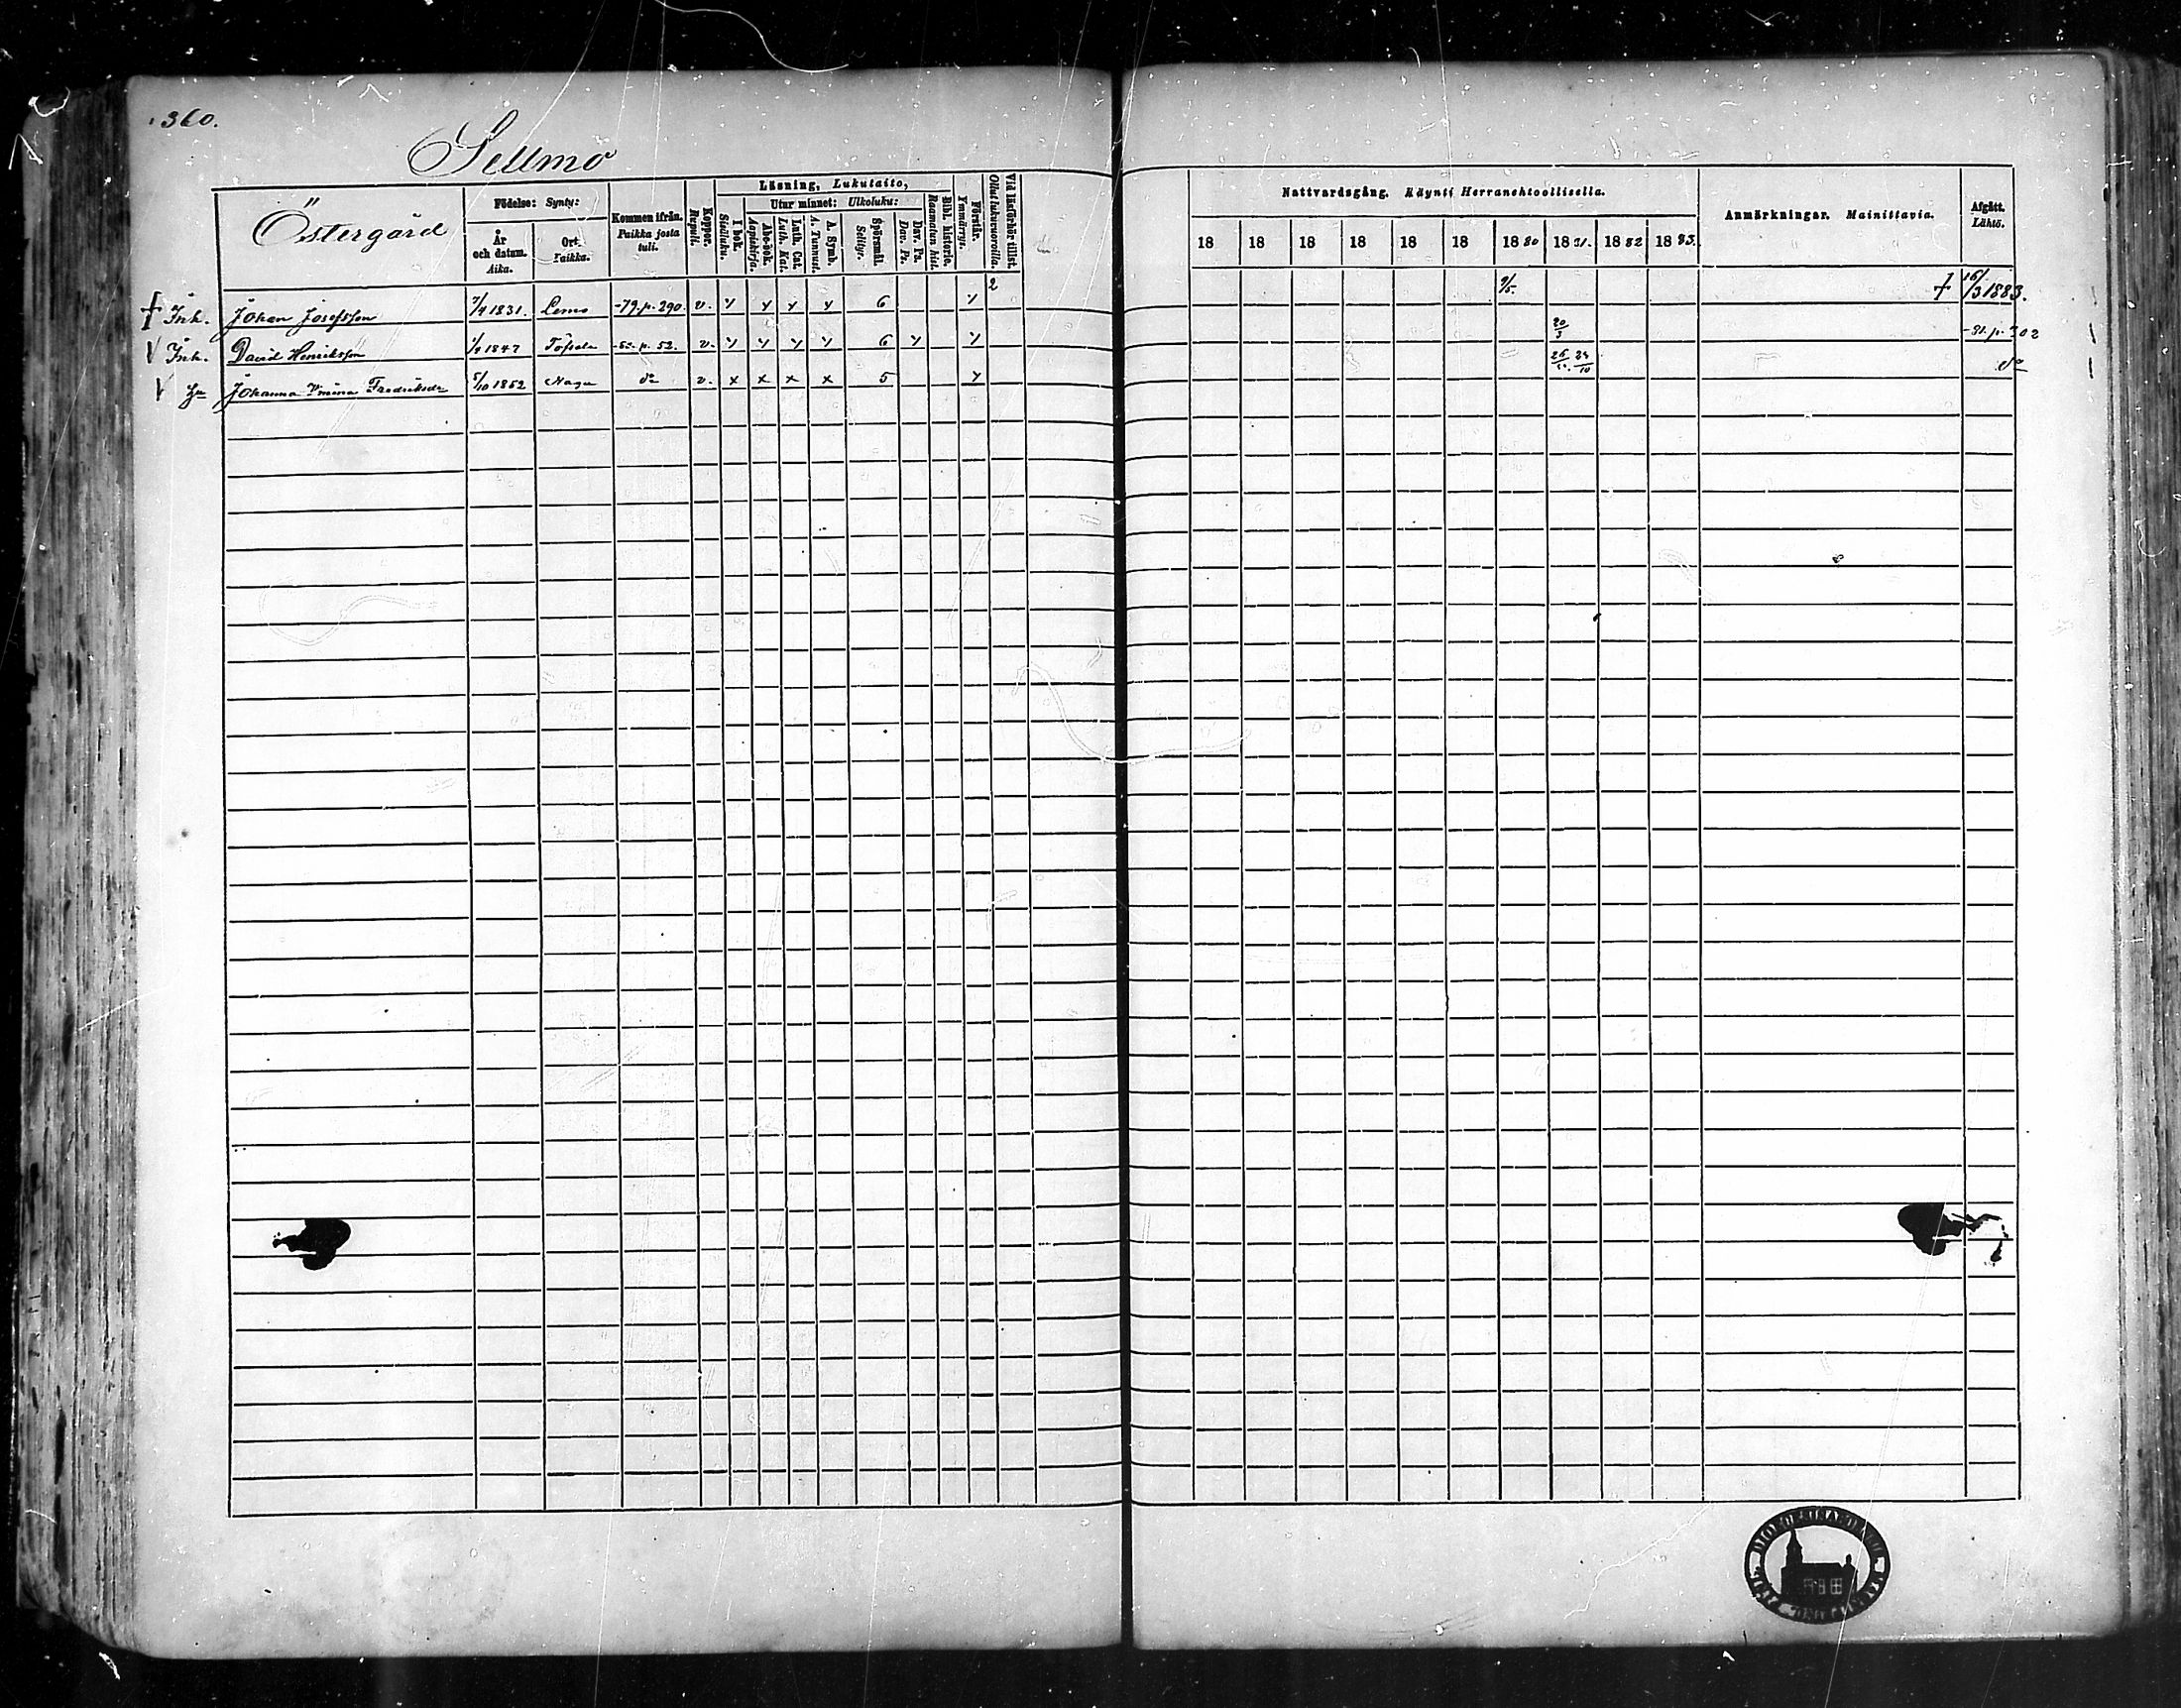 360.
Sellmo
Östergård
Födelse: Synty:
År och datum. Aika.
Ort. Paikka.
Kommen ifrån. Paikka josta tuli.
Koppor. Rupuli.
Läsning, Lukutaito,
I bok. Sisäluku.
Utur minnet: Ulkoluku:
Abc-bok. Aapiskirja.
Luth. Cat. Luth. Kat.
A. Symb. A. Tunnust.
Spörsmål. Selitys.
Dav. Ps. Dav. Ps.
Bibl. historie. Raamatun hist.
Förstår. Ymmärrys.
Vid läsförhör tillst. Ollut lukuvuoroilla.
Nattvardsgång. Käynti Herranehtoollisella.
18 18 18 18 18 18 1880 1881. 1882 1883.
Anmärkningar. Mainittavia.
Afgått. Lähtö.
† Inh. Johan Josefsson 7/4 1831. Lemo -79. p. 290. v. y y y y 6 y 2 9/5. † 16/3 1883.
V Inh. David Henriksson 1847 Töfsala p. 52. v. y y y y 6 y y 20/3 -81. p. 302
V Johanna Fredriksdr 5/10 1852 Nagu do v. x x x x 5 y do